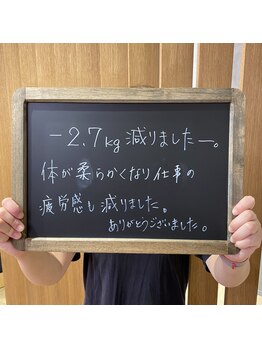 −2.7kg 減りましたー。
体が柔らかくなり仕事の
疲労感も減りました。
ありがとうございました。